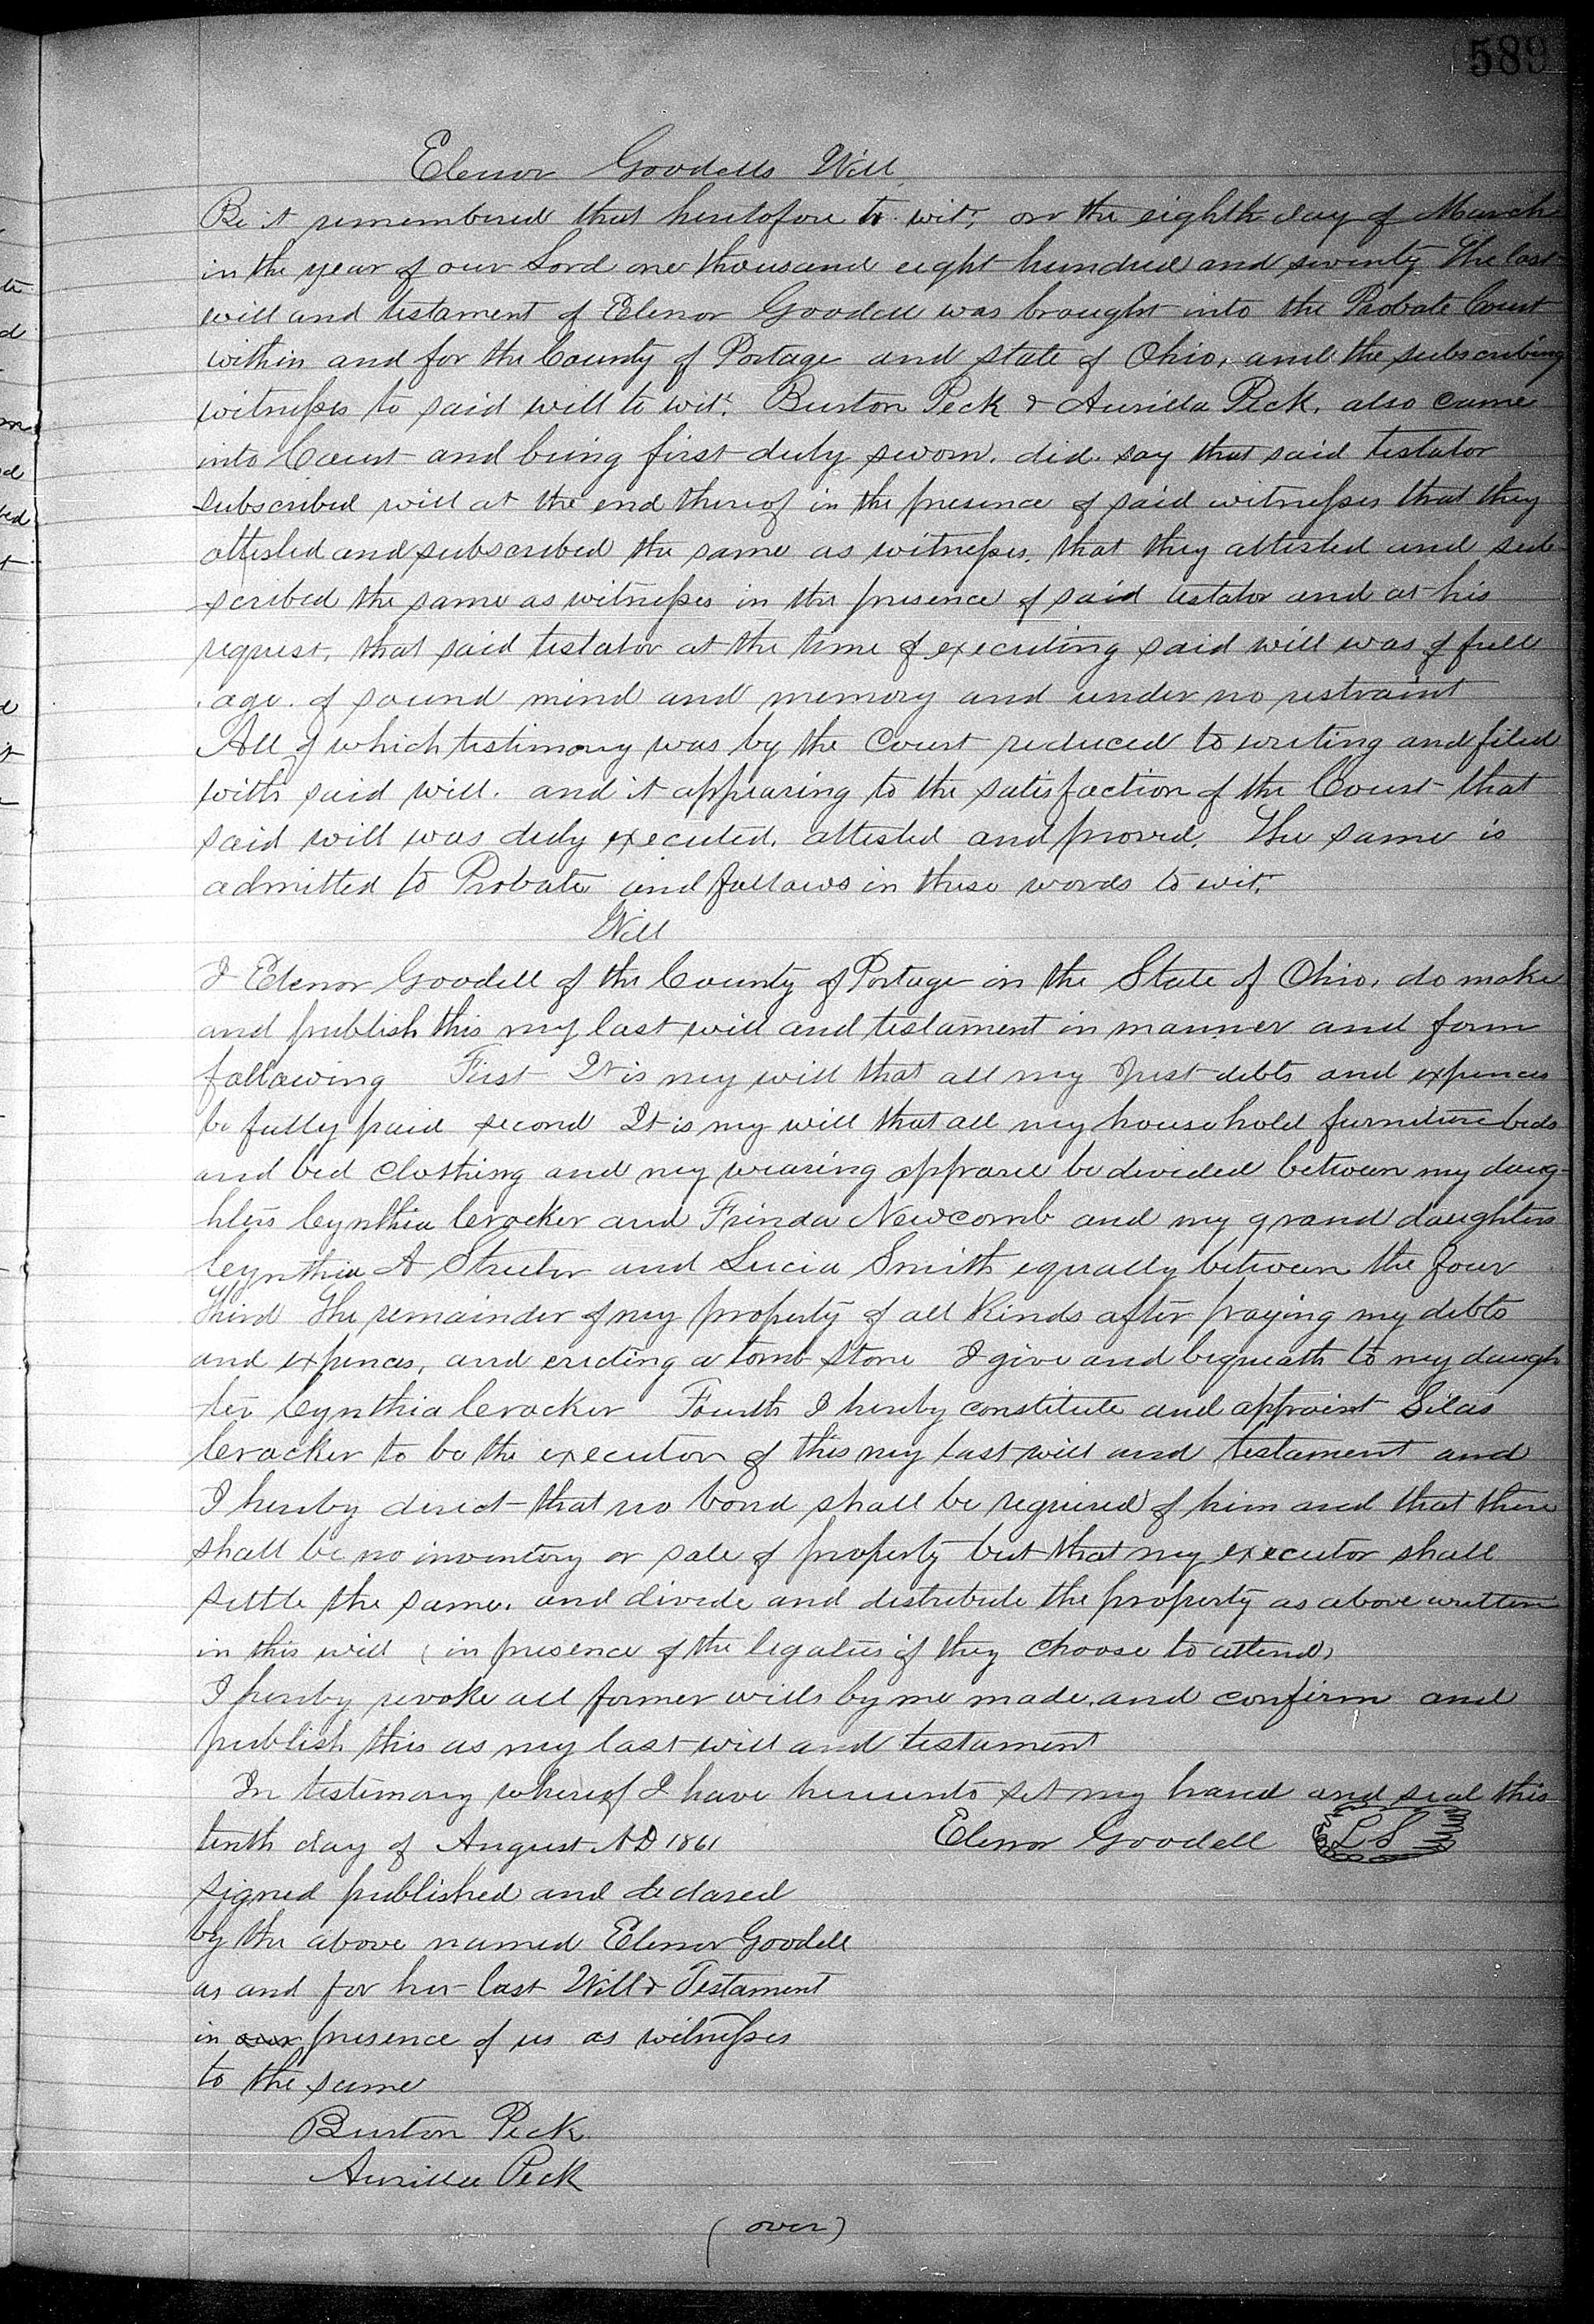 589
Elenor Goodells Will
Be it remembered that heretofore to wit, on the eighth day of March
in the year of our Lord one thousand eight hundred and seventy The last
will and testament of Elenor Goodell was brought into the Probate Court
within and for the County of Portage and state of Ohio, and the subscribing
witnesses to said will to wit. Burton Peck & Aurilla Peck, also came
into Court and being first duly sworn. did say that said testator
subscribed will at the end thereof in the presence of said witnesses that they
attested and subscribed the same as witnesses, that they attested and sub-
scribed the same as witnesses in the presence of said testator and at his
request, that said testator at the time of executing said will was of full
age. of sound mind and memory and under no restraint
All of which testimony was by the Court reduced to writing and filed
with said will. and it appearing to the satisfaction of the Court that
said will was duly executed, attested and proved, The same is
admitted to Probate and follows in these words to wit,
Will
I Elenor Goodell of the County of Portage in the State of Ohio, do make
and publish this my last will and testament in manner and form
following First It is my will that all my Just debts and expences
be fully paid second It is my will that all my household furniture beds
and bed clothing and my wearing apprarel be divided between my daug-
hters Cynthia Crocker and Frinda Newcomb and my grand daughters
Cynthia A Streeter and Lucia Smith equally between the four
Third The remainder of my property of all kinds after paying my debts
and expences, and erecting a tomb stone I give and bequeath to my daugh
ter Cynthia Crocker Fourth I hereby constitute and appoint Silas
Crocker to be the executor of this my last will and testament and
I hereby direct that no bond shall be required of him and that there
shall be no inventory or sale of property but that my executor shall
settle the same. and divide and distribute the property as above written
in this will (in presence of the legatees if they choose to attend)
I hereby revoke all former wills by me made, and confirm and
publish this as my last will and testament
In testimony whereof I have hereunto set my hand and seal this
tenth day of August A D 1861 Elenor Goodell LS
signed published and declared
by the above named Elenor Goodell
as and for her last Will & Testament
in our presence of us as witnesses
to the same
Burton Peck
Aurilla Peck
(over)